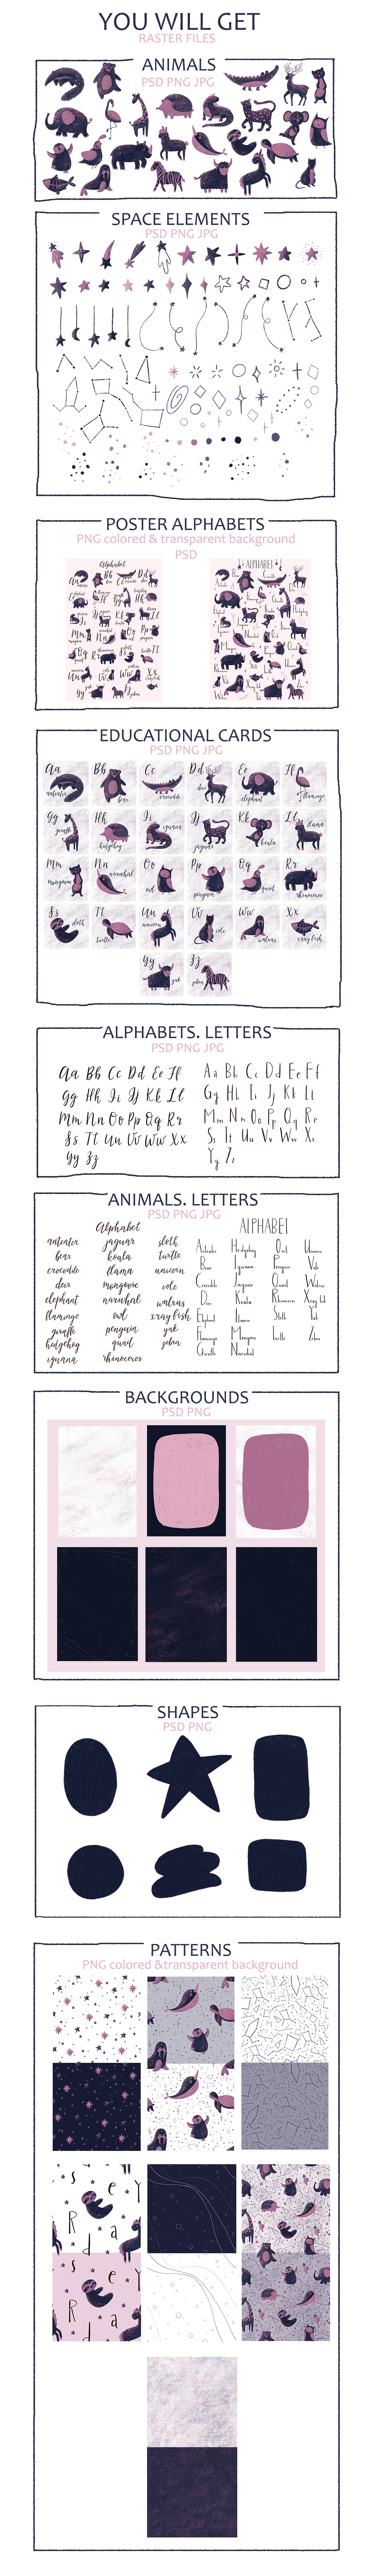 YOU WILL GET
RASTER FILES
ANIMALS
PSD PNG JPG
SPACE ELEMENTS
PSD PNG JPG
POSTER ALPHABETS
PNG colored & transparent background
PSD
Alphabet
ALPHABET
EDUCATIONAL CARDS
PSD PNG JPG
Aa Bb Cc Dd Ee Ff
anteater bear crocodile deer elephant flamingo
Gg Hh Ii Jj Kk Ll
giraffe hedgehog iguana jaguar koala llama
Mm Nn Oo Pp Qq Rr
mongoose narwhal owl penguin quail rhinoceros
Ss Tt Uu Vv Ww Xx
sloth turtle unicorn vole walrus x-ray fish
Yy Zz
yak zebra
ALPHABETS. LETTERS
PSD PNG JPG
Aa Bb Cc Dd Ee Ff
Gg Hh Ii Jj Kk Ll
Mm Nn Oo Pp Qq Rr
Ss Tt Uu Vv Ww Xx
Yy Zz
Aa Bb Cc Dd Ee Ff
Gg Hh Ii Jj Kk Ll
Mm Nn Oo Pp Qq Rr
Ss Tt Uu Vv Ww Xx
Yy Zz
ANIMALS. LETTERS
PSD PNG JPG
Alphabet
anteater
bear
crocodile
deer
elephant
flamingo
giraffe
hedgehog
iguana
jaguar
koala
llama
mongoose
narwhal
owl
penguin
quail
rhinoceros
sloth
turtle
unicorn
vole
walrus
x-ray fish
yak
zebra
ALPHABET
Anteater
Bear
Crocodile
Deer
Elephant
Flamingo
Giraffe
Hedgehog
Iguana
Jaguar
Koala
Llama
Mongoose
Narwhal
Owl
Penguin
Quail
Rhinoceros
Sloth
Turtle
Unicorn
Vole
Walrus
X-ray fish
Yak
Zebra
BACKGROUNDS
PSD PNG
SHAPES
PSD PNG
PATTERNS
PNG colored &transparent background